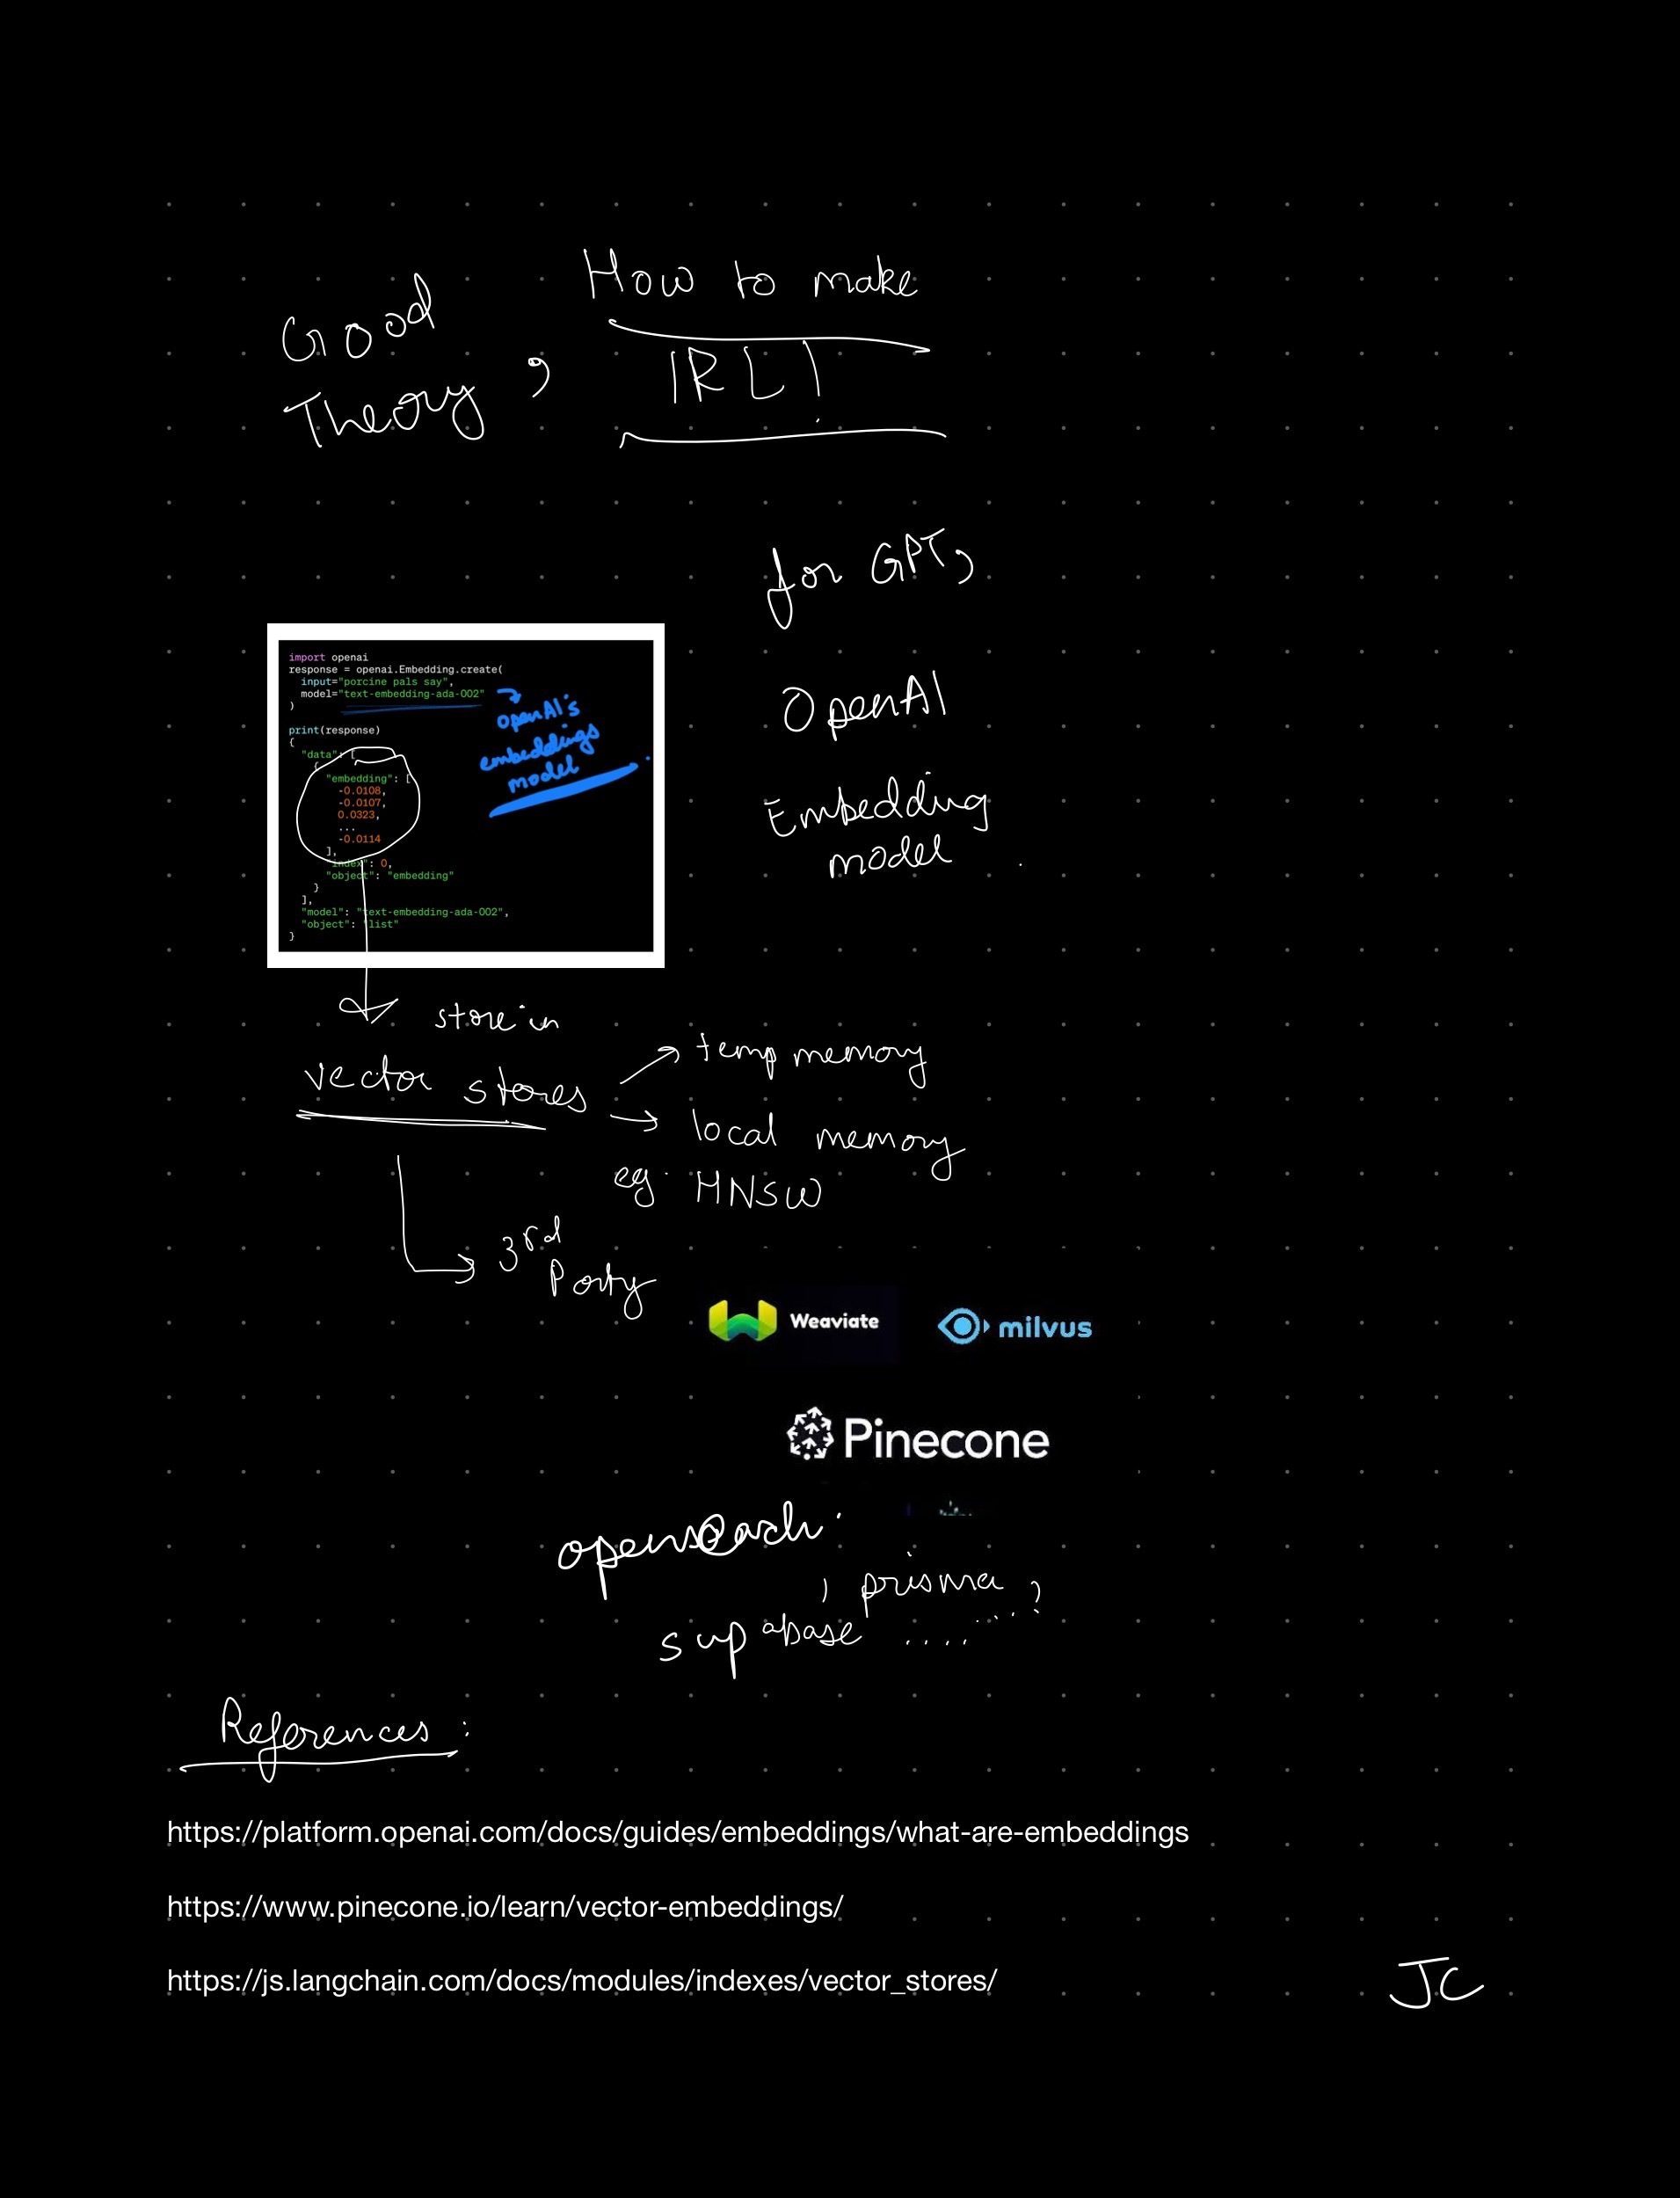 Good
Theory,
How to make
IRL!
for GPT,
OpenAI
Embedding
model
import openai
response = openai.Embedding.create(
  input="porcine pals say",
  model="text-embedding-ada-002"
)
openAI's
embeddings
model
print(response)
{
  "data": [
    {
      "embedding": [
        -0.0108,
        -0.0107,
        0.0323,
        ...
        -0.0114
      ],
      "index": 0,
      "object": "embedding"
    }
  ],
  "model": "text-embedding-ada-002",
  "object": "list"
}
store in
vector stores
temp memory
local memory
eg. HNSW
3rd
Party
Weaviate
milvus
Pinecone
opensearch.
, prisma
supabase .......?
References:
https://platform.openai.com/docs/guides/embeddings/what-are-embeddings
https://www.pinecone.io/learn/vector-embeddings/
https://js.langchain.com/docs/modules/indexes/vector_stores/
JC